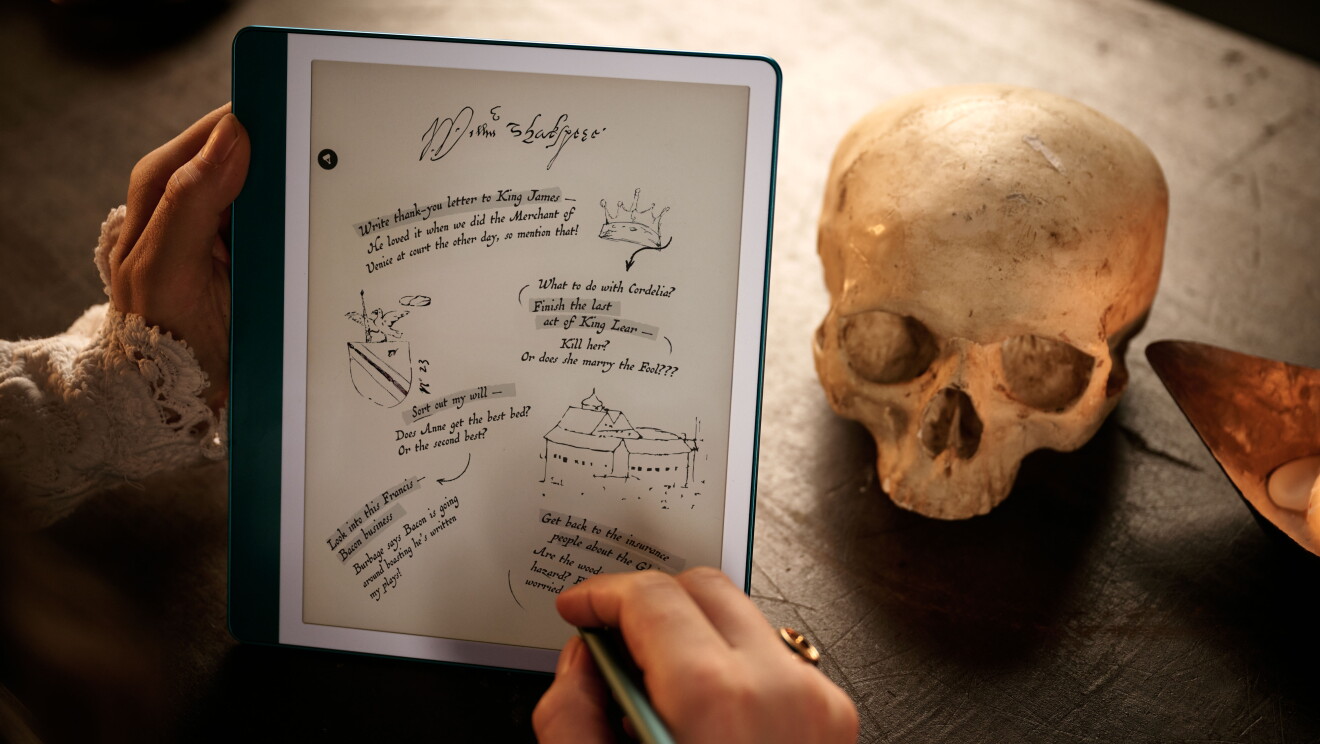 Willm Shakspere
Write thank-you letter to King James —
He loved it when we did the Merchant of
Venice at court the other day, so mention that!
What to do with Cordelia?
Finish the last
act of King Lear —
Kill her?
Or does she marry the Fool???
Sort out my will —
Does Anne get the best bed?
Or the second best?
Look into this Francis —
Bacon business
Burbage says Bacon is going
around boasting he's written
my plays!
Get back to the insurance
people about the
Are the wood
hazard?
worried